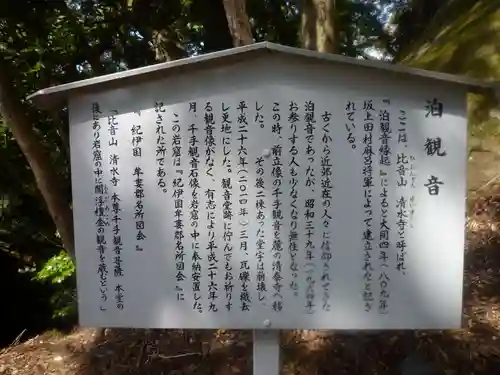 泊観音
ここは、比音山 清水寺と呼ばれ、
『泊観音縁起』によると大同四年(八〇九年)
坂上田村麻呂将軍によって建立されたと記さ
れている。
古くから近郊近在の人々に信仰されてきた
泊観音であったが、昭和三十九年(一九六四年)
お参りする人も少なくなり無住となった。
この時、前立像の千手観音を麓の清泰寺へ移
した。 その後二棟あった堂宇は崩壊し、
平成二十六年(二〇一四年)三月、瓦礫を撤去
し更地にした。観音堂跡に佇んでもお祈りす
る観音像がなく、有志により平成二十六年九
月、千手観音石像を岩窟の中に奉納安置した。
この岩窟は『紀伊国牟婁郡名所図会』に
記された所である。
『紀伊国 牟婁郡名所図会』
「比音山 清水寺 本尊千手観音菩薩 本堂の
後にあり岩窟の中に閻浮檀金の観音を蔵むという」